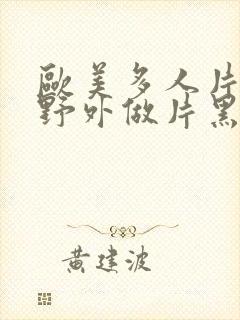 歐美多人片
野外做片黑
黃建波